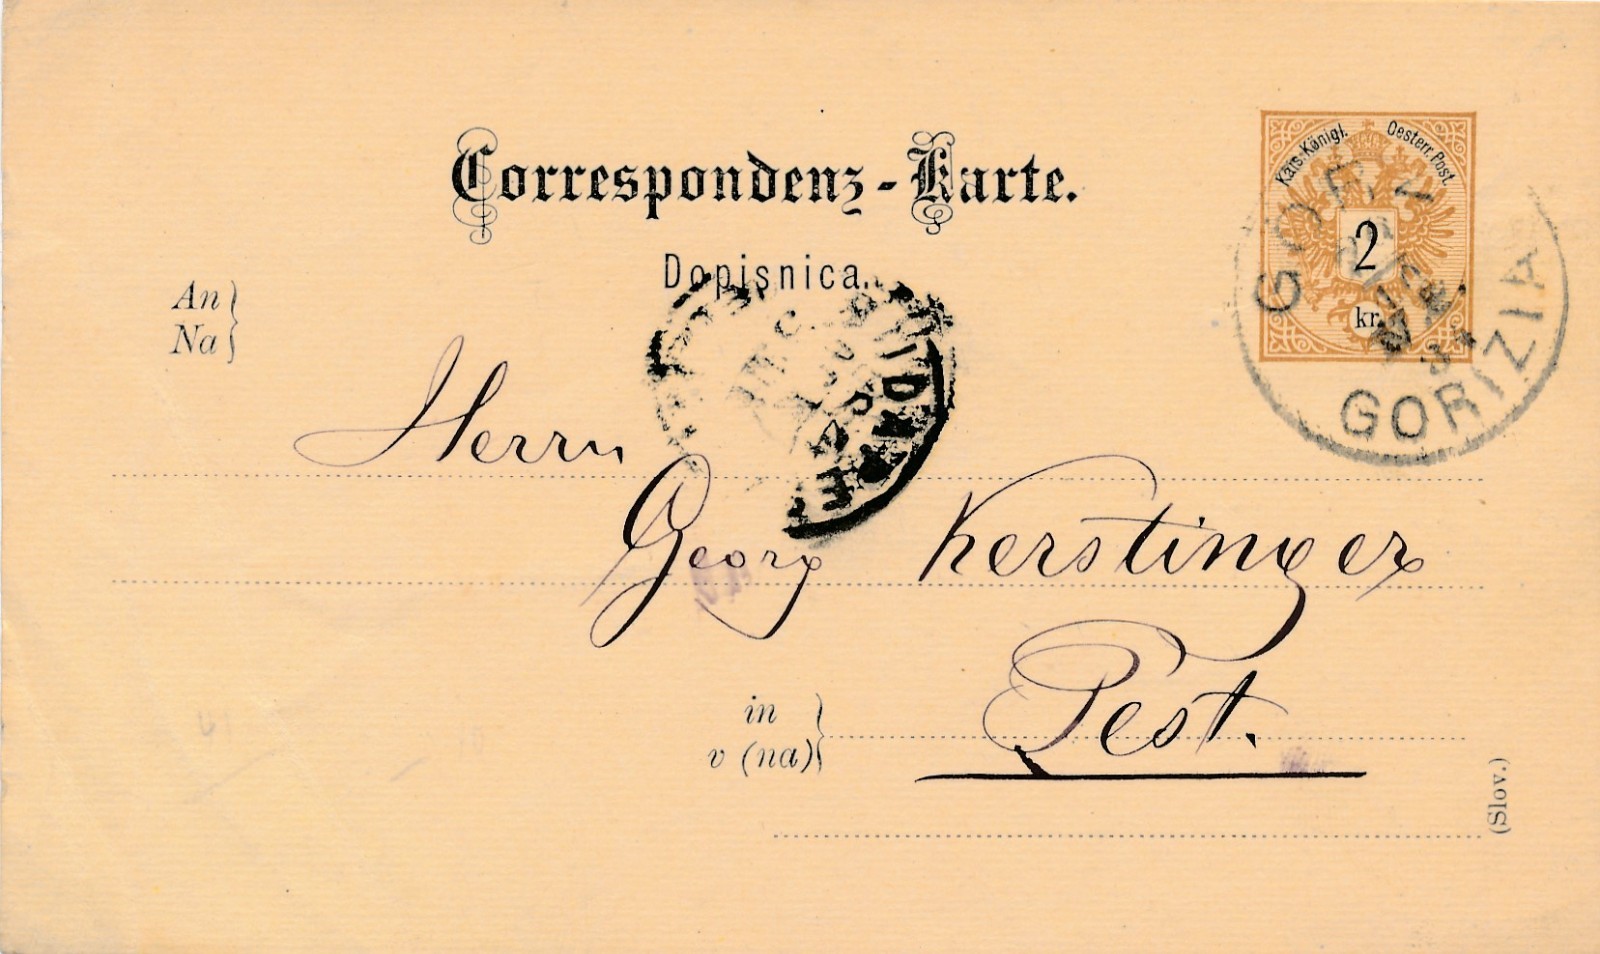 Correspondenz-Karte.
Dopisnica.
Kais. Königl. Oesterr. Post.
2
kr.
GÖRZ
GORIZIA
An
Na
Herrn
Georg Kerstinger
in
v (na)
Pest.
(Slov.)